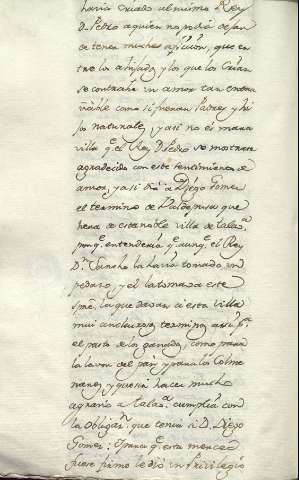 havia criado al mismo Rey
D. Pedro a quien no podia dejar
de tener mucha aficion, que en
tre los ahijados, y los que los Crian
se contrahe un amor tan entra
ñable como si fueran Padres y hi
jos naturales, y asi no es mara
villa q.e el Rey D. Pedro se mostrara
agradecido con este sentimiento de
amor, y asi dió a Diego Gomez
el termino de Valdepusa que
hera de esta noble villa de Tala.a
porq.e entenderia q.e aunq.e el Rey
D.n Sancho la havia tomado un
pedazo, y el la tomava este
que dexavan a esta villa
mui anchuroso termino assi p.a
el pasto de los ganados, como para
la lavor del pan y para los Colme
nares, y que sin hacer mucho
agravio a Tala.a cumplia con
la Obligaz.n que tenia á D. Diego
Gomez: Y para q.e esta merced
fuese firme le dió un Privilegio